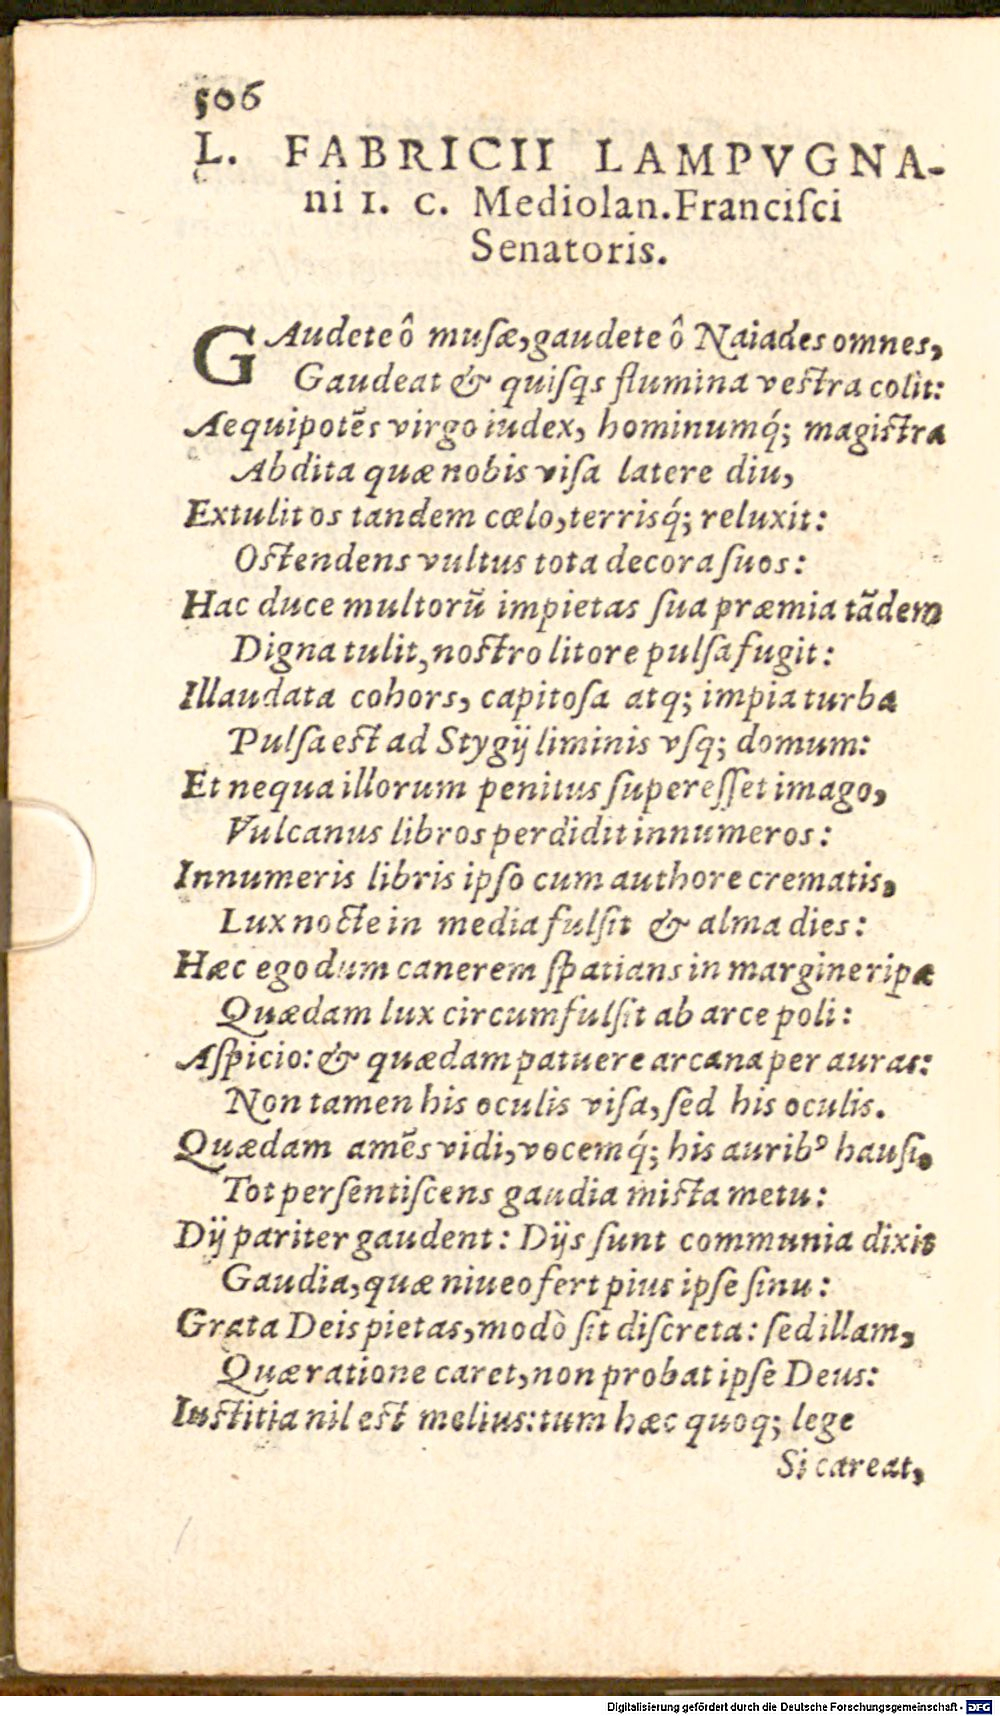 506
L. FABRICII LAMPVGNA-
ni I. C. Mediolan.Franciſci
Senatoris.
GAudete ô muſæ,gaudete ô Naiades omnes,
Gaudeat & quiſqs flumina veſtra colit:
Aequipotẽs virgo iudex, hominumq́; magiſtra
Abdita quæ nobis viſa latere diu,
Extulit os tandem cœlo,terrisq́; reluxit:
Oſtendens vultus tota decora ſuos:
Hac duce multorũ impietas ſua præmia tãdem
Digna tulit,noſtro litore pulſa fugit:
Illaudata cohors, capitoſa atq; impia turba
Pulſa eſt ad Stygij liminis vſq; domum:
Et nequa illorum penitus ſupereſſet imago,
Vulcanus libros perdidit innumeros:
Innumeris libris ipſo cum authore crematis,
Lux nocte in media fulſit & alma dies:
Hæc ego dum canerem ſpatians in margine ripæ
Quædam lux circumfulſit ab arce poli:
Aſpicio: & quædam patuere arcana per auras:
Non tamen his oculis viſa, ſed his oculis.
Quædam amẽs vidi,vocemq́; his auribꝰ hauſi,
Tot perſentiſcens gaudia miſta metu:
Dij pariter gaudent: Dijs ſunt communia dixit
Gaudia,quæ niueo fert pius ipſe ſinu:
Grata Deis pietas,modò ſit diſcreta: ſed illam,
Quæ ratione caret,non probat ipſe Deus:
Iuſtitia nil eſt melius:tum hæc quoq; lege
Si careat,
Digitalisierung gefördert durch die Deutsche Forschungsgemeinschaft - DFG